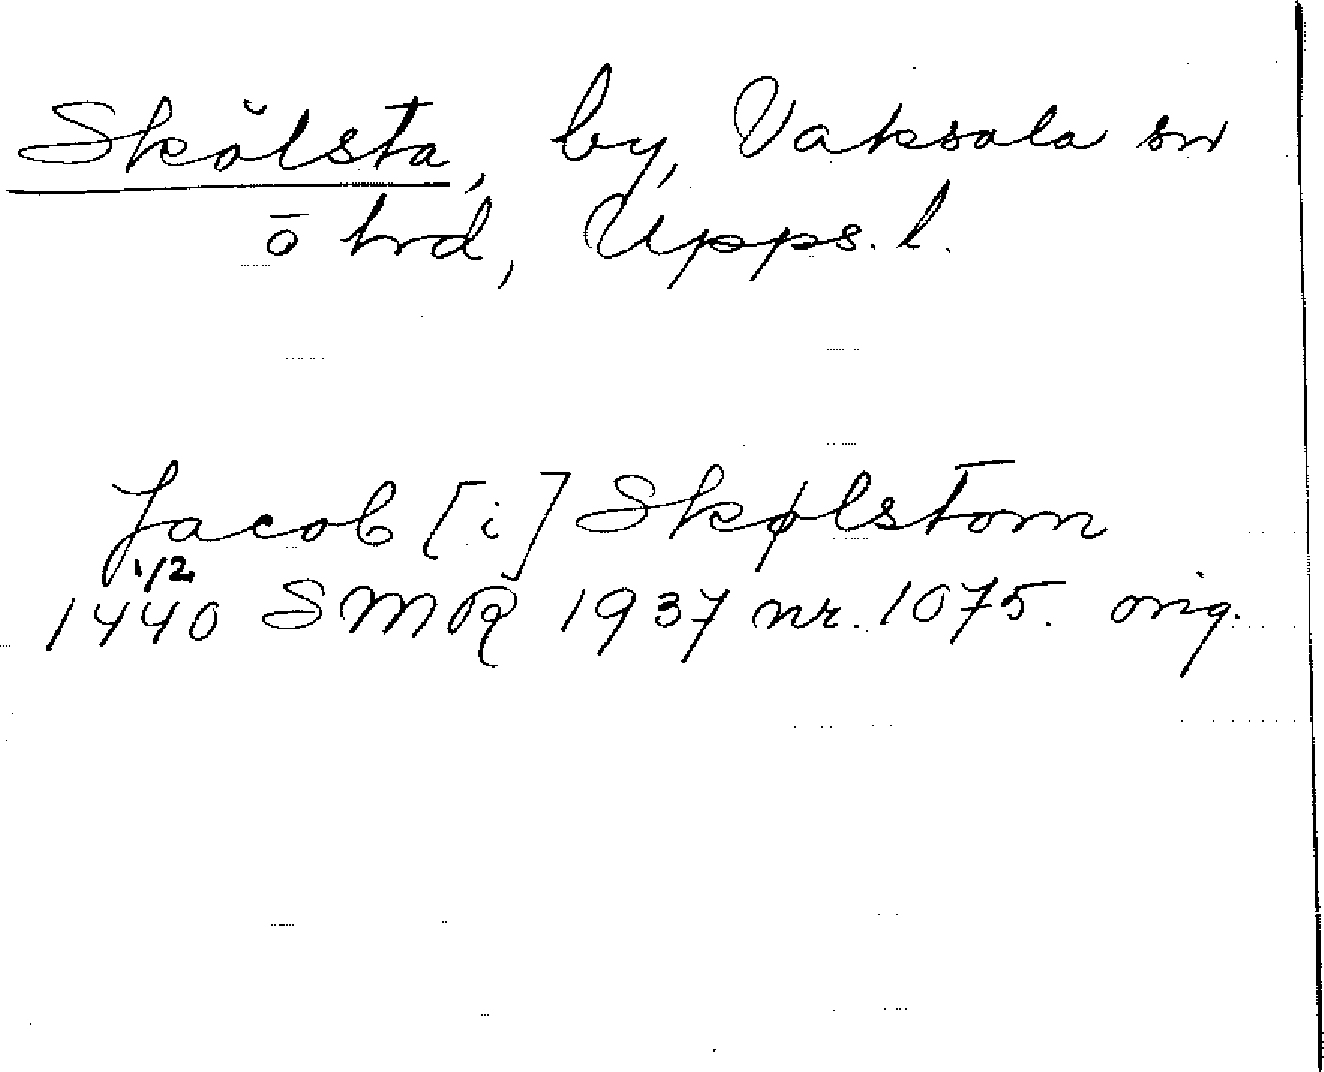 Skölsta, by, Vaksala sn
ö hrd, Upps. l.
Jacob [i] Skølstom
1/2
1440 SMR 1937 nr. 1075. orig.